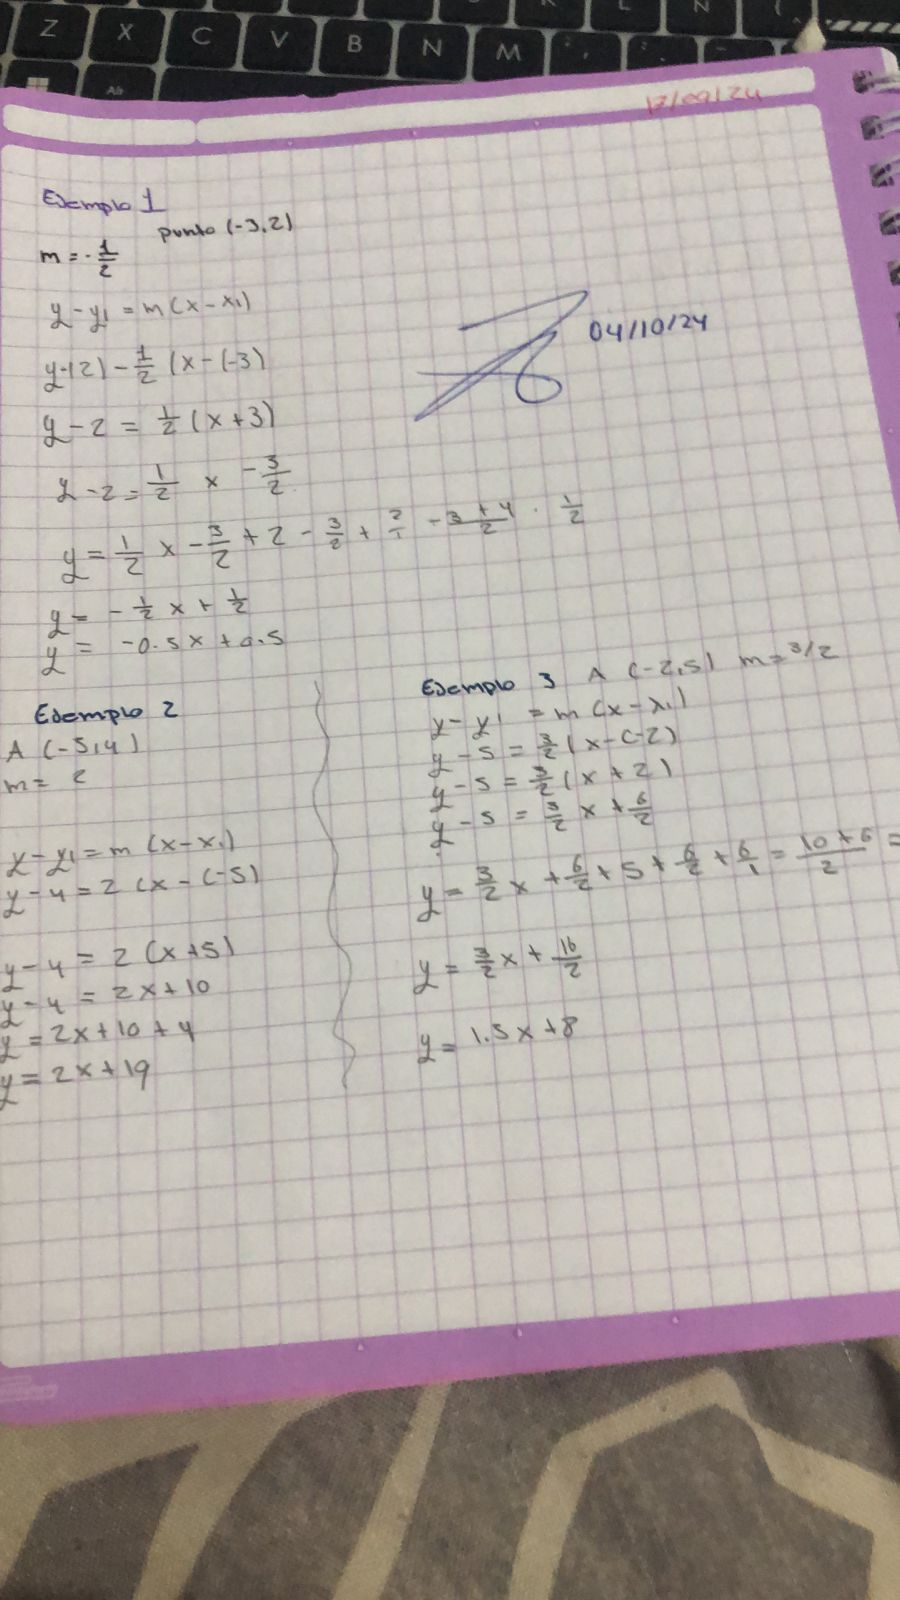 Z X C V B N M
Alt
17/09/24
Ejemplo 1
punto (-3,2)
m = -1/2
y - y1 = m (x - x1)
y-(2) - 1/2 (x - (-3)
y - 2 = 1/2 (x + 3)
y - 2 = 1/2 x - 3/2
y = 1/2 x - 3/2 + 2 - 3/2 + 2/1 - 3 + 4/2 . 1/2
y = - 1/2 x + 1/2
y = -0.5x + 0.5
04/10/24
Ejemplo 2
A (-5,4)
m = 2
y - y1 = m (x - x1)
y - 4 = 2 (x - (-5)
y - 4 = 2 (x+5)
y - 4 = 2x + 10
y = 2x + 10 + 4
y = 2x + 19
Ejemplo 3 A (-2,5) m = 3/2
y - y1 = m (x - x1)
y - 5 = 3/2 (x - (-2)
y - 5 = 3/2 (x + 2)
y - 5 = 3/2 x + 6/2
y = 3/2 x + 6/2 + 5 + 6/2 + 6/1 = 10 + 6/2 =
y = 3/2 x + 16/2
y = 1.5x + 8